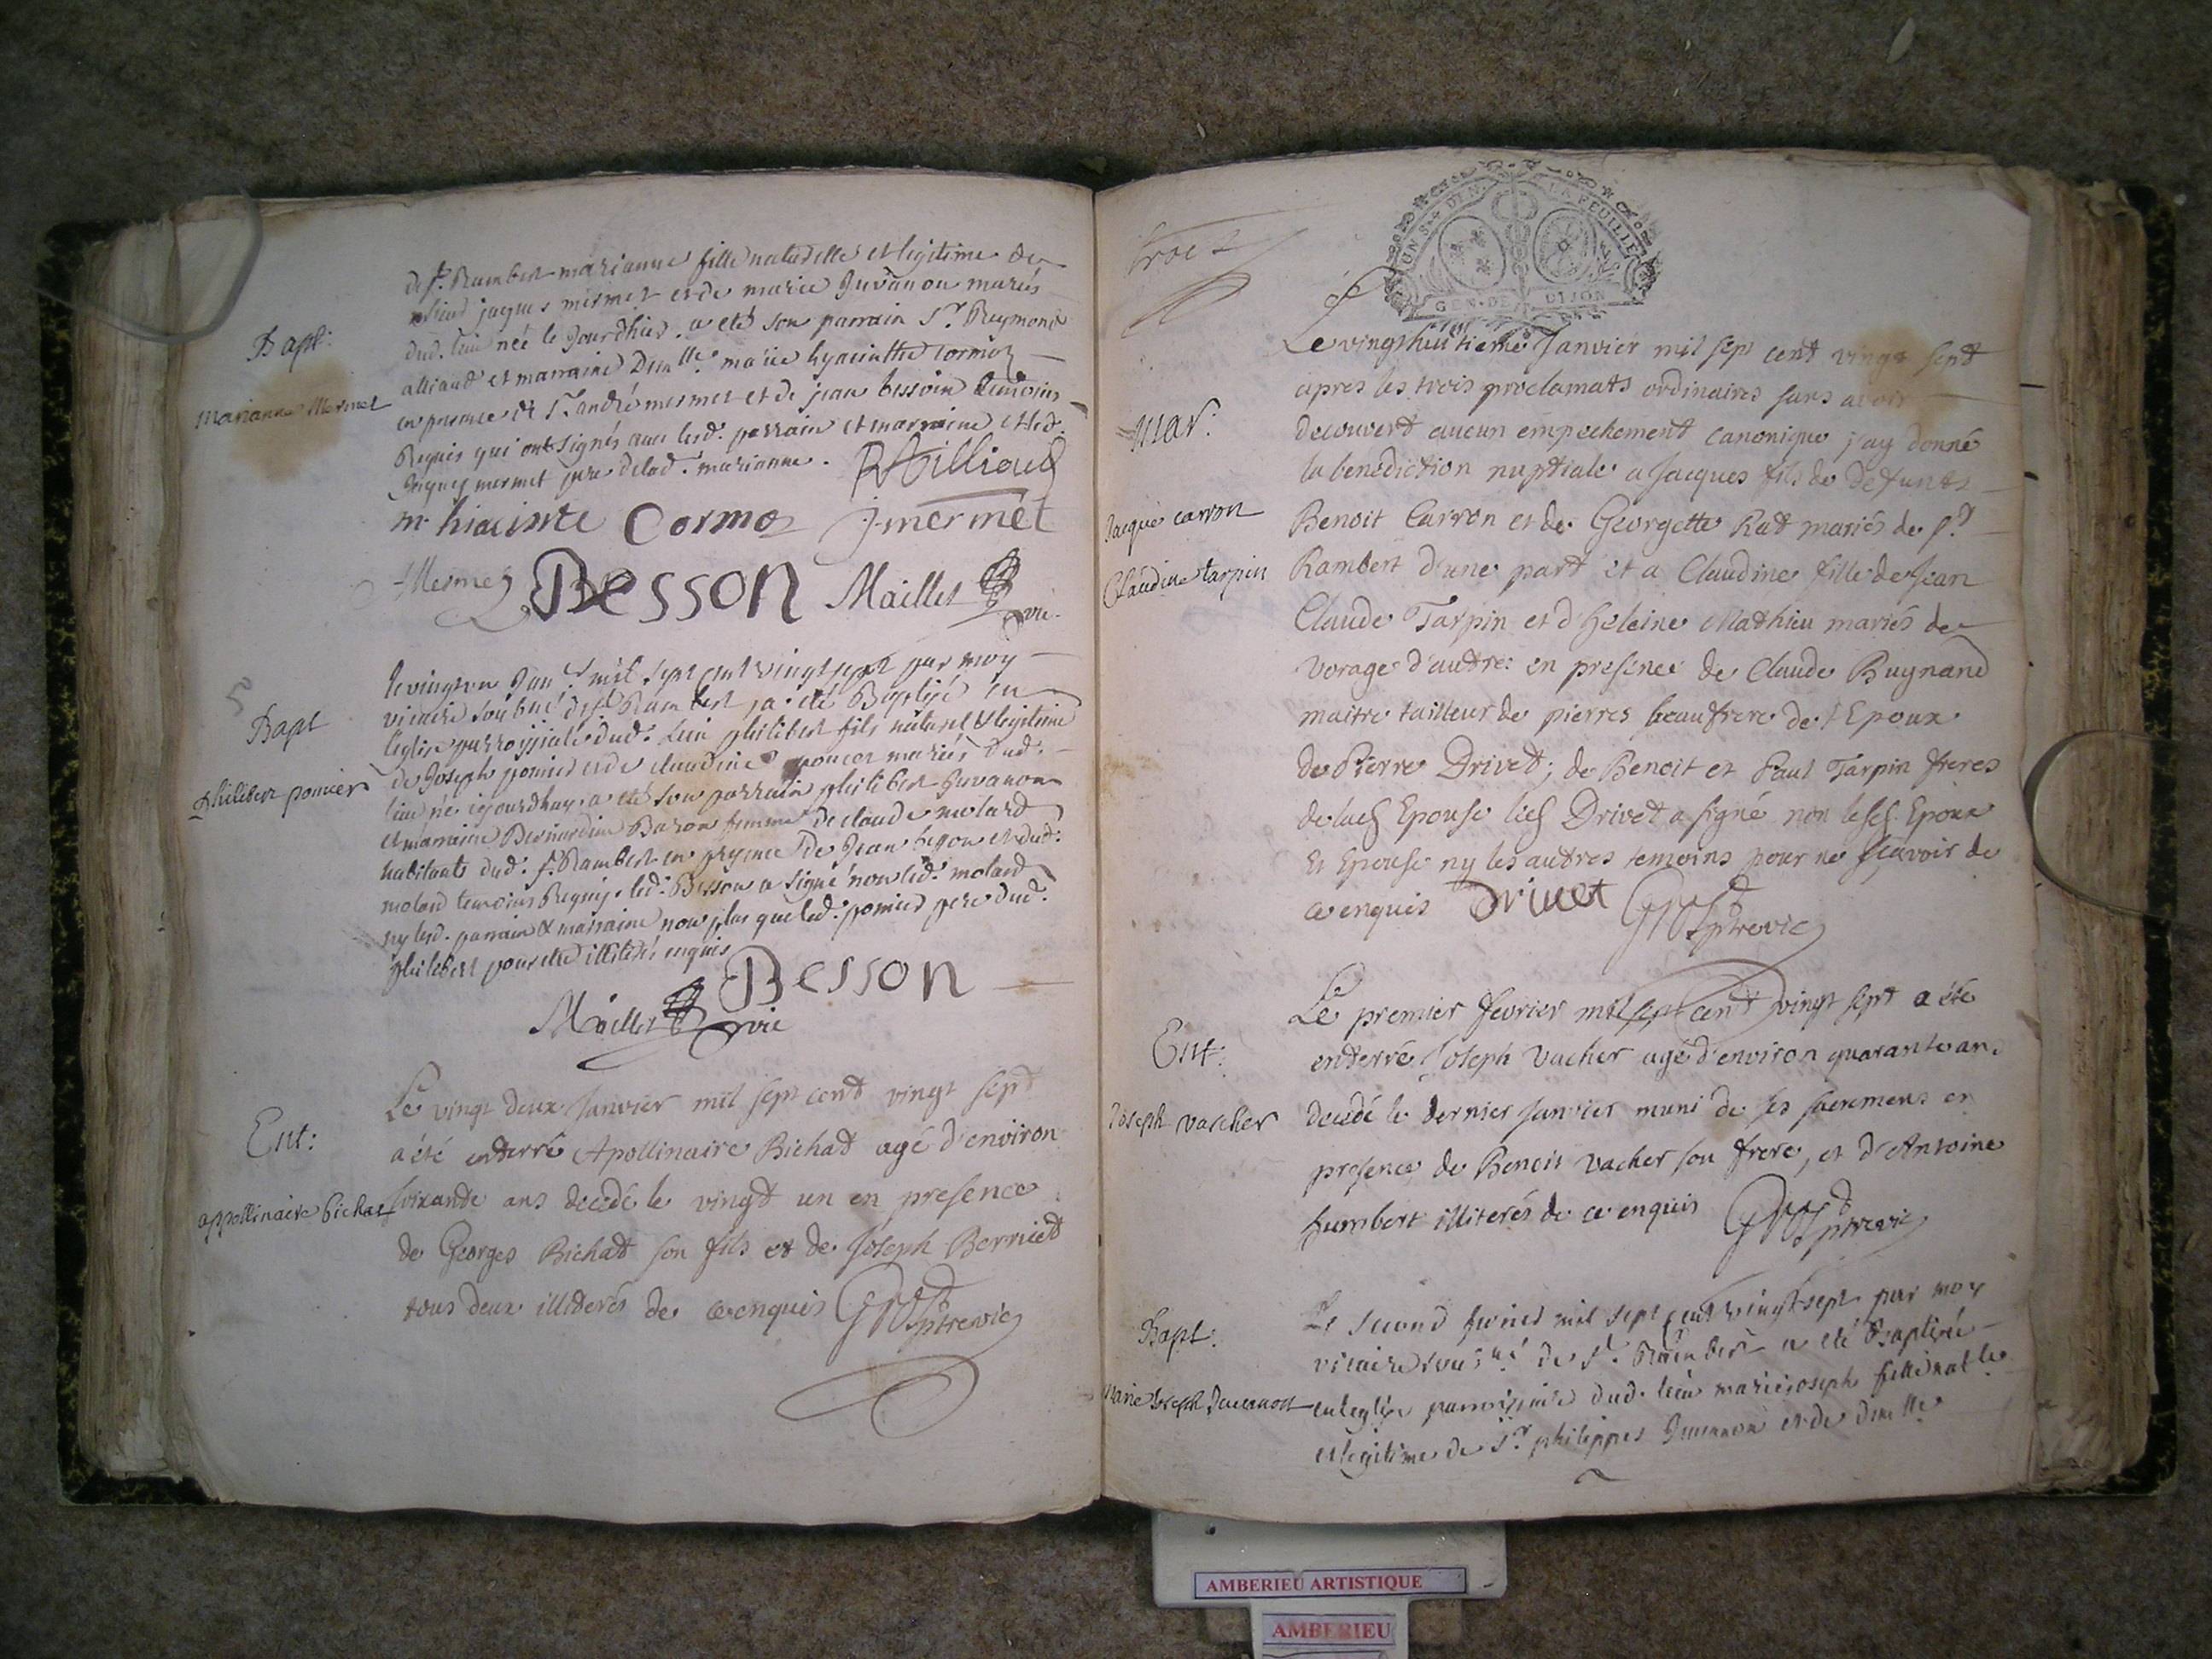 Bapt:
Marianne Mermet
de st. Rambert marianne fille naturelle et legitime de
sieur jaques mermet et de marie Juvanon mariés
dud. lieu née le jourdhui. a eté son parrain sr. Reymond
alliaud et marraine Dem.lle marie hyacinthe Cormoz
en presence de sr. andré mermet et de jean besson temoins
Requis qui ont signés avec lesd. parrain et marraine et led.
jaques mermet pere delad. marianne.
m. hiacinte Cormoz jmermet
Besson Maillet vic.
Bapt
philibert pomier
le vingt un janr. mil sept cent vingt sept par moy
vicaire sousné. de st. Rambert a été Baptisé en
leglise parroissiale dud. lieu philibert fils naturel & legitime
de Joseph pomier et de claudine poncet mariés dud.
lieu né cejourdhuy a eté son parrain philibert Juvanon
et marraine Bernardine Baron femme de claude molard
habitants dud. st. Rambert en presence de Jean besson et dud.
molard temoins Requis. led. Besson a signé non led. molard
ny lesd. parrain & marraine non plus que led. pomier pere dud.
philibert pour etre illiterés enquis
Besson
Maillet vic
Ent:
appollinaire bichat
Le vingt deux Janvier mil sept cent vingt sept
a été enterré Apollinaire Bichat agé d'environ
soixante ans decedé le vingt un en presence
de Georges Bichat son fils et de Joseph Berruiet
tous deux illiterés de ce enquis
ptrevic
trois
UN S. DEN. LA FEUILLE
GEN. DE DIJON
Mar:
Jacque carron
Claudine tarpin
Le vingthuitieme Janvier mil sept cent vingt sept
apres les trois proclamats ordinaires sans avoir
decouvert aucun empechement canonique j'ay donné
la benediction nuptiale a Jacques fils de defunts
Benoit Carron et de Georgette Rat mariés de st.
Rambert d'une part et a Claudine fille de Jean
Claude Tarpin et d'heleine Mathieu mariés de
vorage d'autre: en presence de Claude Bugnand
maitre tailleur de pierres beaufrere de l'Epoux
de Pierre Drivet; de Benoit et Paul Tarpin freres
de lad. Epouse lied. Drivet a signé non lesd. Epoux
et Epouse ny les autres temoins pour ne sçavoir de
ce enquis Drivet
ptrevic
Ent:
Joseph vacher
Le premier fevrier mil sept cent vingt sept a été
enterré Joseph Vacher agé d'environ quarante ans
decedé le dernier Janvier muni de ses sacremens en
presence de Benoit vacher son frere, et d'Antoine
humbert illiterés de ce enquis
ptrevic
Bapt:
Marie Joseph Juvanon
Le second fevrier mil sept cent vingt sept par moy
vicaire sousné de st. Rambert a eté Baptisée
en leglise parroissiale dud. lieu marie joseph fille nat.lle
et legitime de sr. philippes Juvanon et de dem.lle
AMBERIEU ARTISTIQUE
AMBERIEU